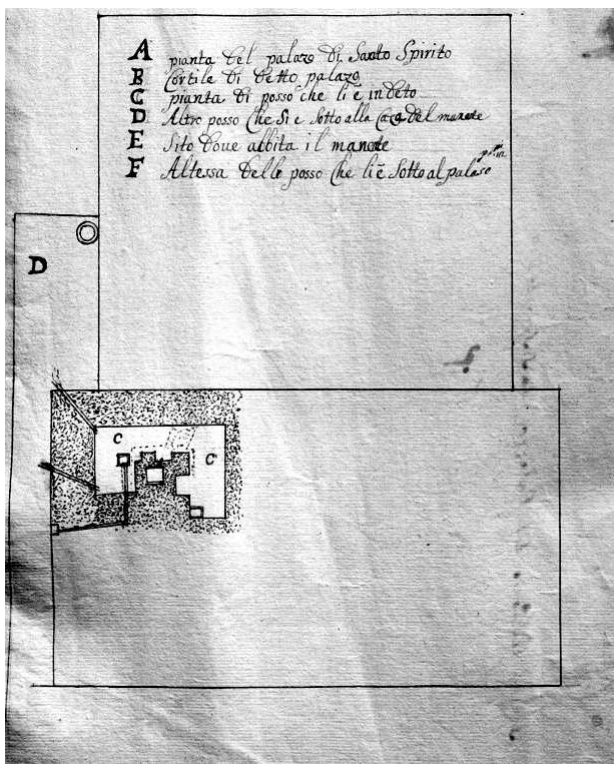 A pianta del palazo di Santo Spirito
B Cortile di detto palazo
C pianta di posso che li è indeto
D Altro posso Che Si è Sotto alla Casa del manete
E Sito doue abbita il manete
F Altessa delle posso Che li è Sotto al palaso
D
C
C